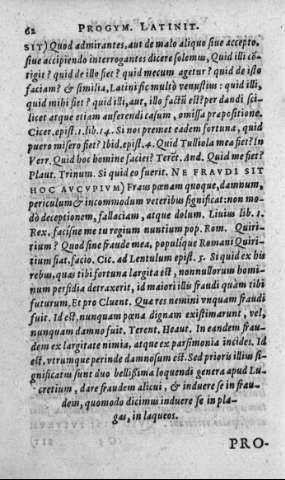 62 PROGYM. LATINIT.
SIT) Quod admirantes, aut de malo aliquo siue accepto,
siue accipiendo interrogantes dicere solemus, Quid illi cō-
tigit? quid de illo fiet? quid mecum agetur? quid de isto
faciam? & similia, Latini sic multò venustius: quid illi,
quid mihi fiet? quid illi, aut, illo factū est? per dandi sci-
licet atque etiam auferendi casum, omissa præpositione.
Cicer. epist. 1. lib. 14. Si nos premet eadem fortuna, quid
puero misero fiet? Ibid. epist. 4. Quid Tulliola mea fiet? In
Verr. Quid hoc homine faciet? Terēt. And. Quid me fiet?
Plaut. Trinum. Si quid eo fuerit. NE FRAVDI SIT
HOC AVCVPIVM) Fraus pœnam quoque, damnum,
periculum & incommodum veteribus significat: non mo-
dò deceptionem, fallaciam, atque dolum. Liuius lib. 1.
Rex. facisne me tu regium nuntium pop. Rom. Quiri-
tium? Quod sine fraude mea, populique Romani Quiri-
tium fiat, facio. Cic. ad Lentulum epist. 5. Si quid ex his
rebus, quas tibi fortuna largita est, nonnullorum homi-
num perfidia detraxerit, id maiori illis fraudi quàm tibi
futurum. Et pro Cluent. Quæ res nemini vnquam fraudi
fuit. Id est, nunquam pœna dignam existimarunt, vel,
nunquam damno fuit. Terent. Heaut. In eandem frau-
dem ex largitate nimia, atque ex parsimonia incides. Id
est, vtrumque perinde damnosum est. Sed prioris illius si-
gnificatus sunt duo bellissima loquendi genera apud Lu-
cretium, dare fraudem alicui, & induere se in frau-
dem, quomodo dicimus induere se in pla-
gas, in laqueos.
PRO-